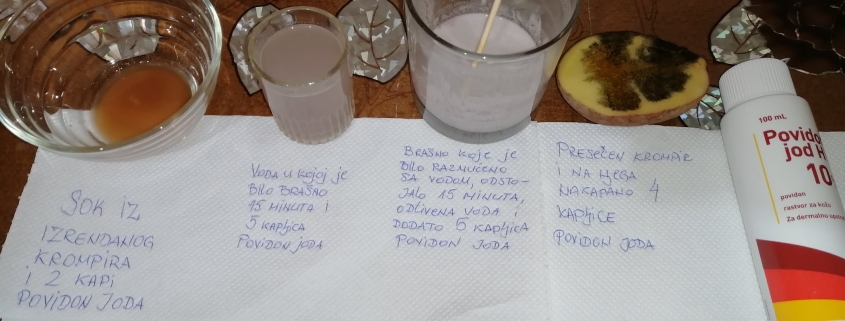 SOK IZ
IZRENDANOG
KROMPIRA
i 2 KAPI
POVIDON JODA
VODA U KOJOJ JE
BILO BRAŠNO
15 MINUTA I
5 KAPLJICA
POVIDON JODA
BRAŠNO KOJE JE
BILO RAZMUĆENO
SA VODOM, ODSTO-
JALO 15 MINUTA,
ODLIVENA VODA I
DODATO 5 KAPLJICA
POVIDON JODA
PRESEČEN KROMPIR
I NA NJEGA
NAKAPANO 4
KAPLJICE
POVIDON JODA
100 mL
Povido
jod H
10
povidon
rastvor za kožu
Za dermalnu upotre